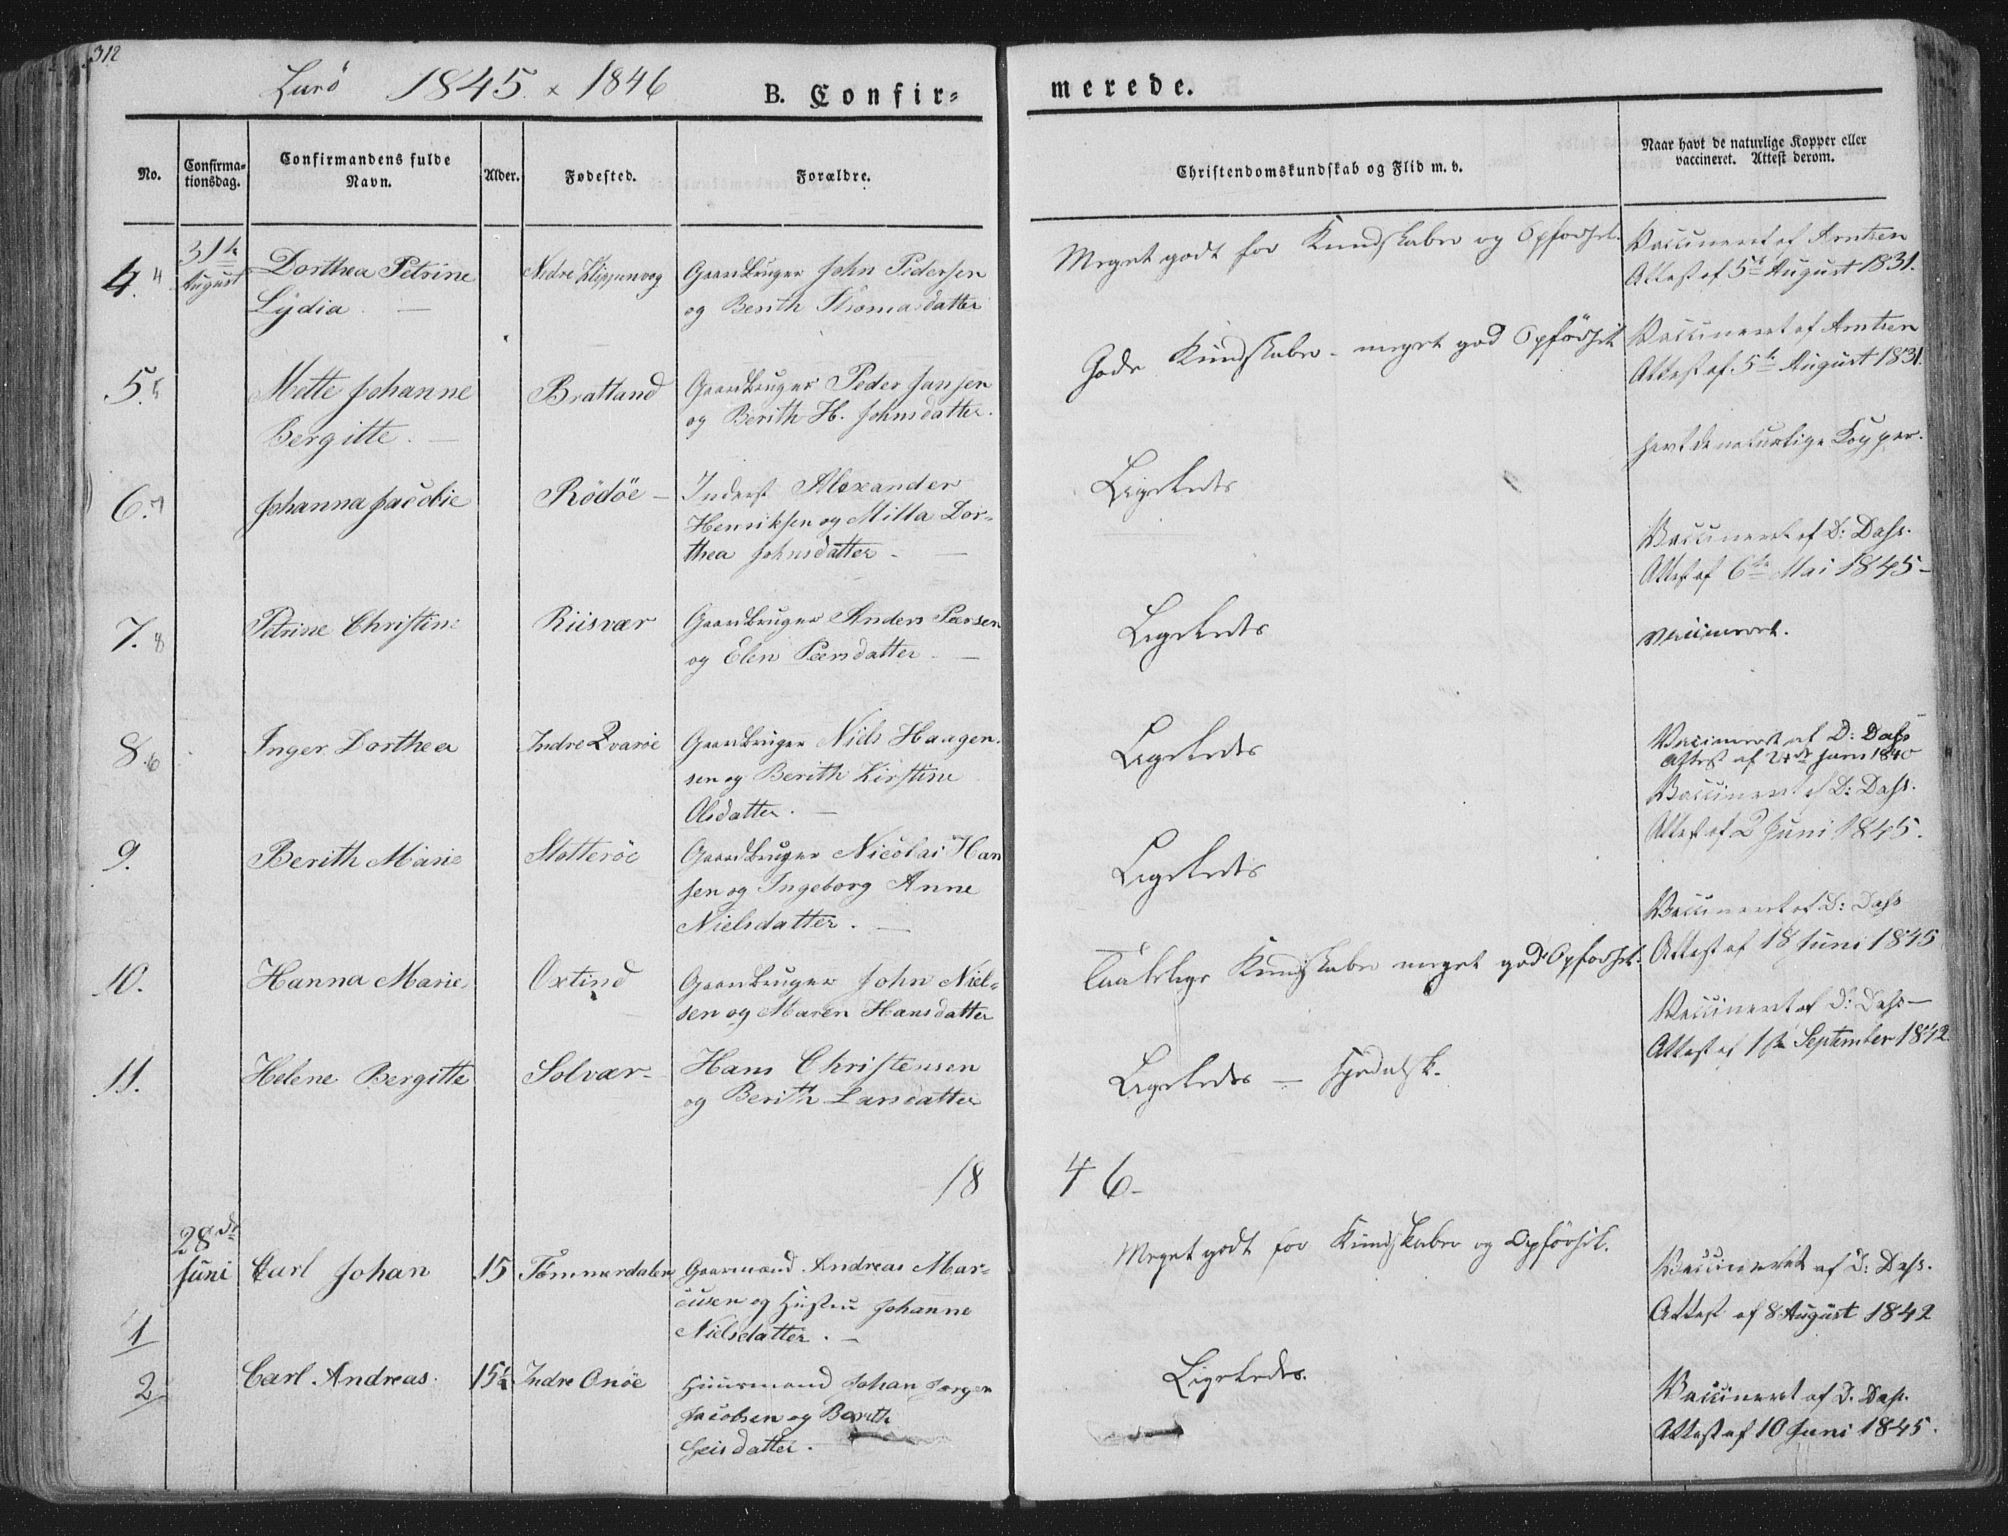 312
Lurö 1845 x 1846
B. Confir=
merede.
No.
Confirma-
tionsdag.
Confirmandens fulde
Navn.
Alder.
Fødested.
Forældre.
Christendomskundskab og Flid m. v.
Naar havt de naturlige Kopper eller
vaccineret. Attest derom.
4. 4 31te August Dorthea Petrine
Lydia. —
Nedre
Gaardbruger John Pedersen
og Berith Thomasdatter
Meget godt for Kundskaber og Opförsel.
Vaccineret af Arntzen
Attest af 5te August 1831.
5. 5 Mette Johanne
Bergitte. —
Brattand
Gaardbruger Peder Jansen
og Berith H. Johnsdatter.
Gode Kundskaber - meget god Opförsel
Vaccineret af Arntzen
Attest af 5te August 1831.
6. 7 Johanna Jacobie
Rödöe —
Inderst Alexander
Henriksen og Milla Dor=
thea Johnsdatter —
Ligeledes
havt de naturlige Kopper.
Vaccineret af D: Dahs.
Attest af 6te Mai 1845 -
7. 8 Petrine Christine
Riisvær
Gaardbruger Anders Pærsen
og Elen Pærsdatter. —
Ligeledes
vaccineret.
8. 6 Inger Dorthea
Indre Qvarøe
Gaardbruger Niels Haagen-
sen og Berith Kirstine
Olsdatter. —
Ligeledes
Vaccineret af D: Dahs
Attest af 21de Juni 1840
9. Berith Marie
Stotterøe
Gaardbruger Nicolai Han
sen og Ingeborg Anne
Nielsdatter. —
Ligeledes
Vaccineret af D: Dahs.
Attest af 2 Juni 1845.
10. Hanna Marie
Oxtind
Gaardbruger John Niel=
sen og Maren Hansdatter
Taalelige Kundskaber meget god Opförsel.
Vaccineret af D: Dahs
Attest af 18 Juni 1845
11. Helene Bergitte
Solvær -
Hans Christensen
og Berith Larsdatter
Ligeledes — Spedalsk.
Vaccineret af D: Dahs —
Attest af 1ste September 1842
18 46-
1 28de Juni Carl Johan
15
Tömmerdalen
Gaardmand Andreas Mar=
cusen og Hustru Johanne
Nielsdatter. —
Meget godt for Kundskaber og Opförsel.
Vaccineret af D: Dahs.
Attest af 8 August 1842
2 Carl Andreas.
15½
Indre Onöe
Huusmand Johan Jørgen
Jacobsen og Berith
Ligeledes.
Vaccineret af D. Dahs.
Attest af 10 Juni 1845.